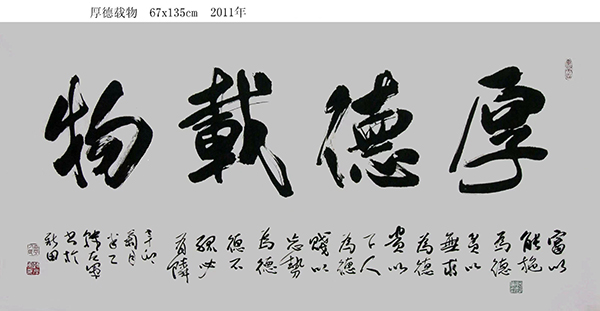 厚德载物 67x135cm 2011年
厚德載物
富以
能施
為德
貧以
無求
為德
貴以
下人
為德
賤以
忘勢
為德
德不
孤必
有隣
辛卯
菊月
书於
新田